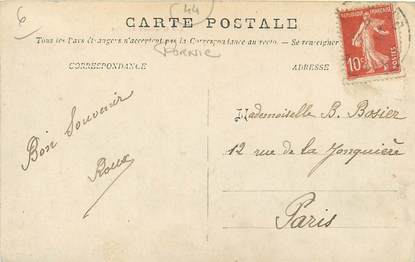 6
[44]
CARTE POSTALE
Tous les Pays étrangers n'acceptent pas la Correspondance au recto. — Se renseigner
PORNIC
CORRESPONDANCE
ADRESSE
REPUBLIQUE FRANÇAISE
10c
POSTES
Bon Souvenir
Roux
Mademoiselle B. Bosier
12 rue de la Jonquière
Paris